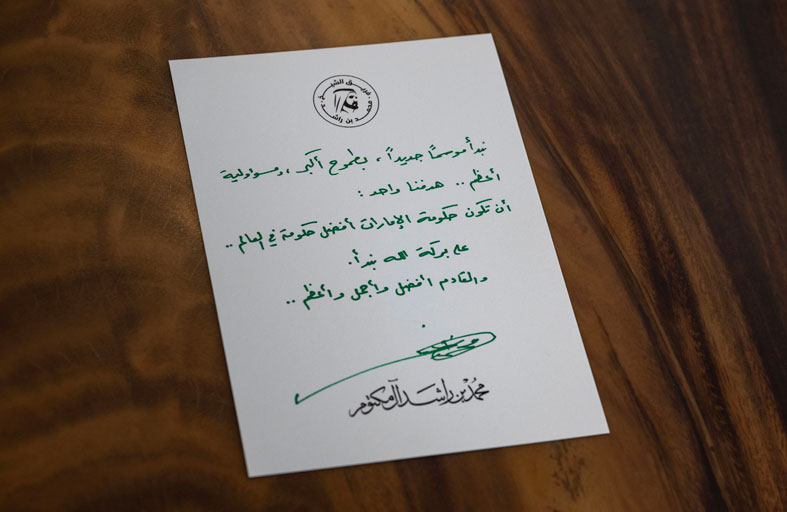 فريق الشيخ
محمد بن راشد
نبدأ موسمًا جديداً ، بطموح أكبر ، ومسؤولية
أعظم .. هدفنا واحد :
أن تكون حكومة الإمارات أفضل حكومة في العالم ..
على بركة الله نبدأ .
والقادم أفضل وأجمل وأعظم ..
محمد بن راشد آل مكتوم